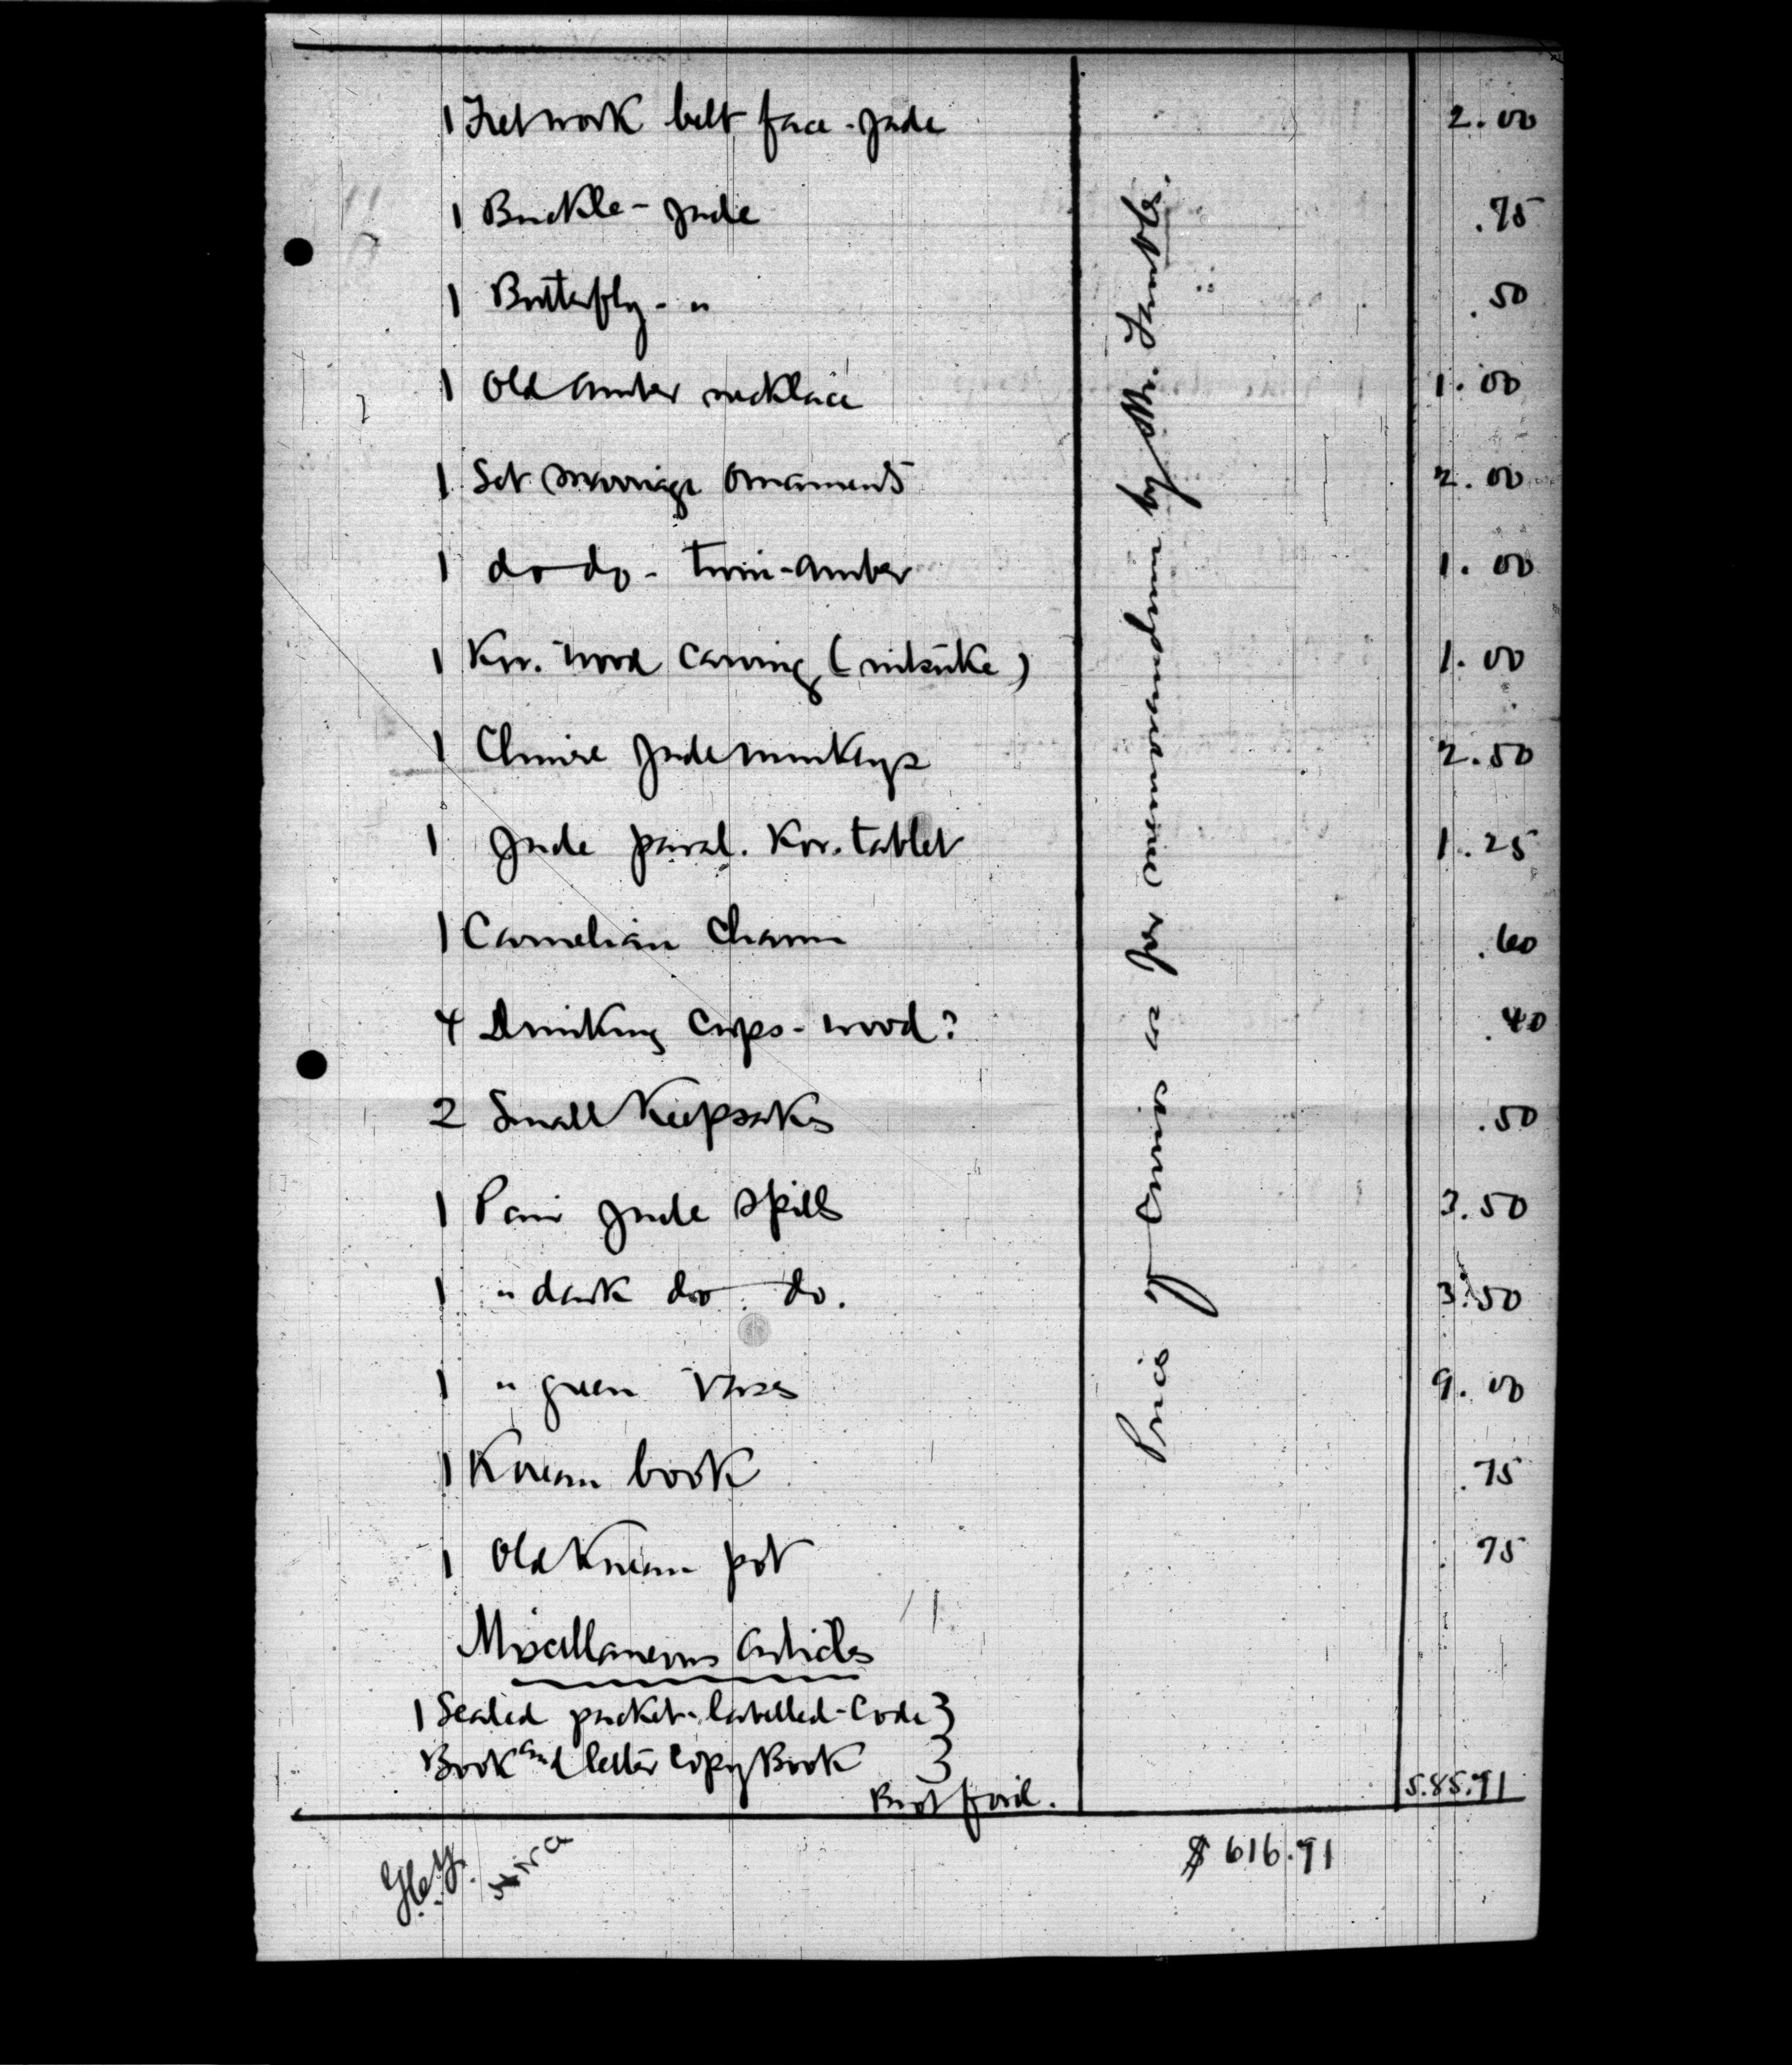 1 Fretwork belt face - jade 2.00
1 Buckle - jade .75
1 Butterfly - " .50
1 Old amber necklace 1.00
1 Set marriage ornaments 2.00
1 do do - twin-amber 1.00
1 Kor. wood carving ( nitsuke ) 1.00
1 Choice jade monkeys 2.50
1 Jade paral. Kor. tablet 1.25
1 Carnelian Charm .60
4 Drinking cups - wood? .40
2 Small Keepsakes .50
1 Pair jade spills 3.50
1 " dark do do. 3.50
1 " green vases 9.00
1 Korean book .75
1 Old Korean pot .75
Prices of Curios as per memorandum by Mr.
Miscellaneous Articles
1 Sealed packet - labelled - Code }
Book and letter Copy Book }
Brot ford. 585.91
$ 616.91